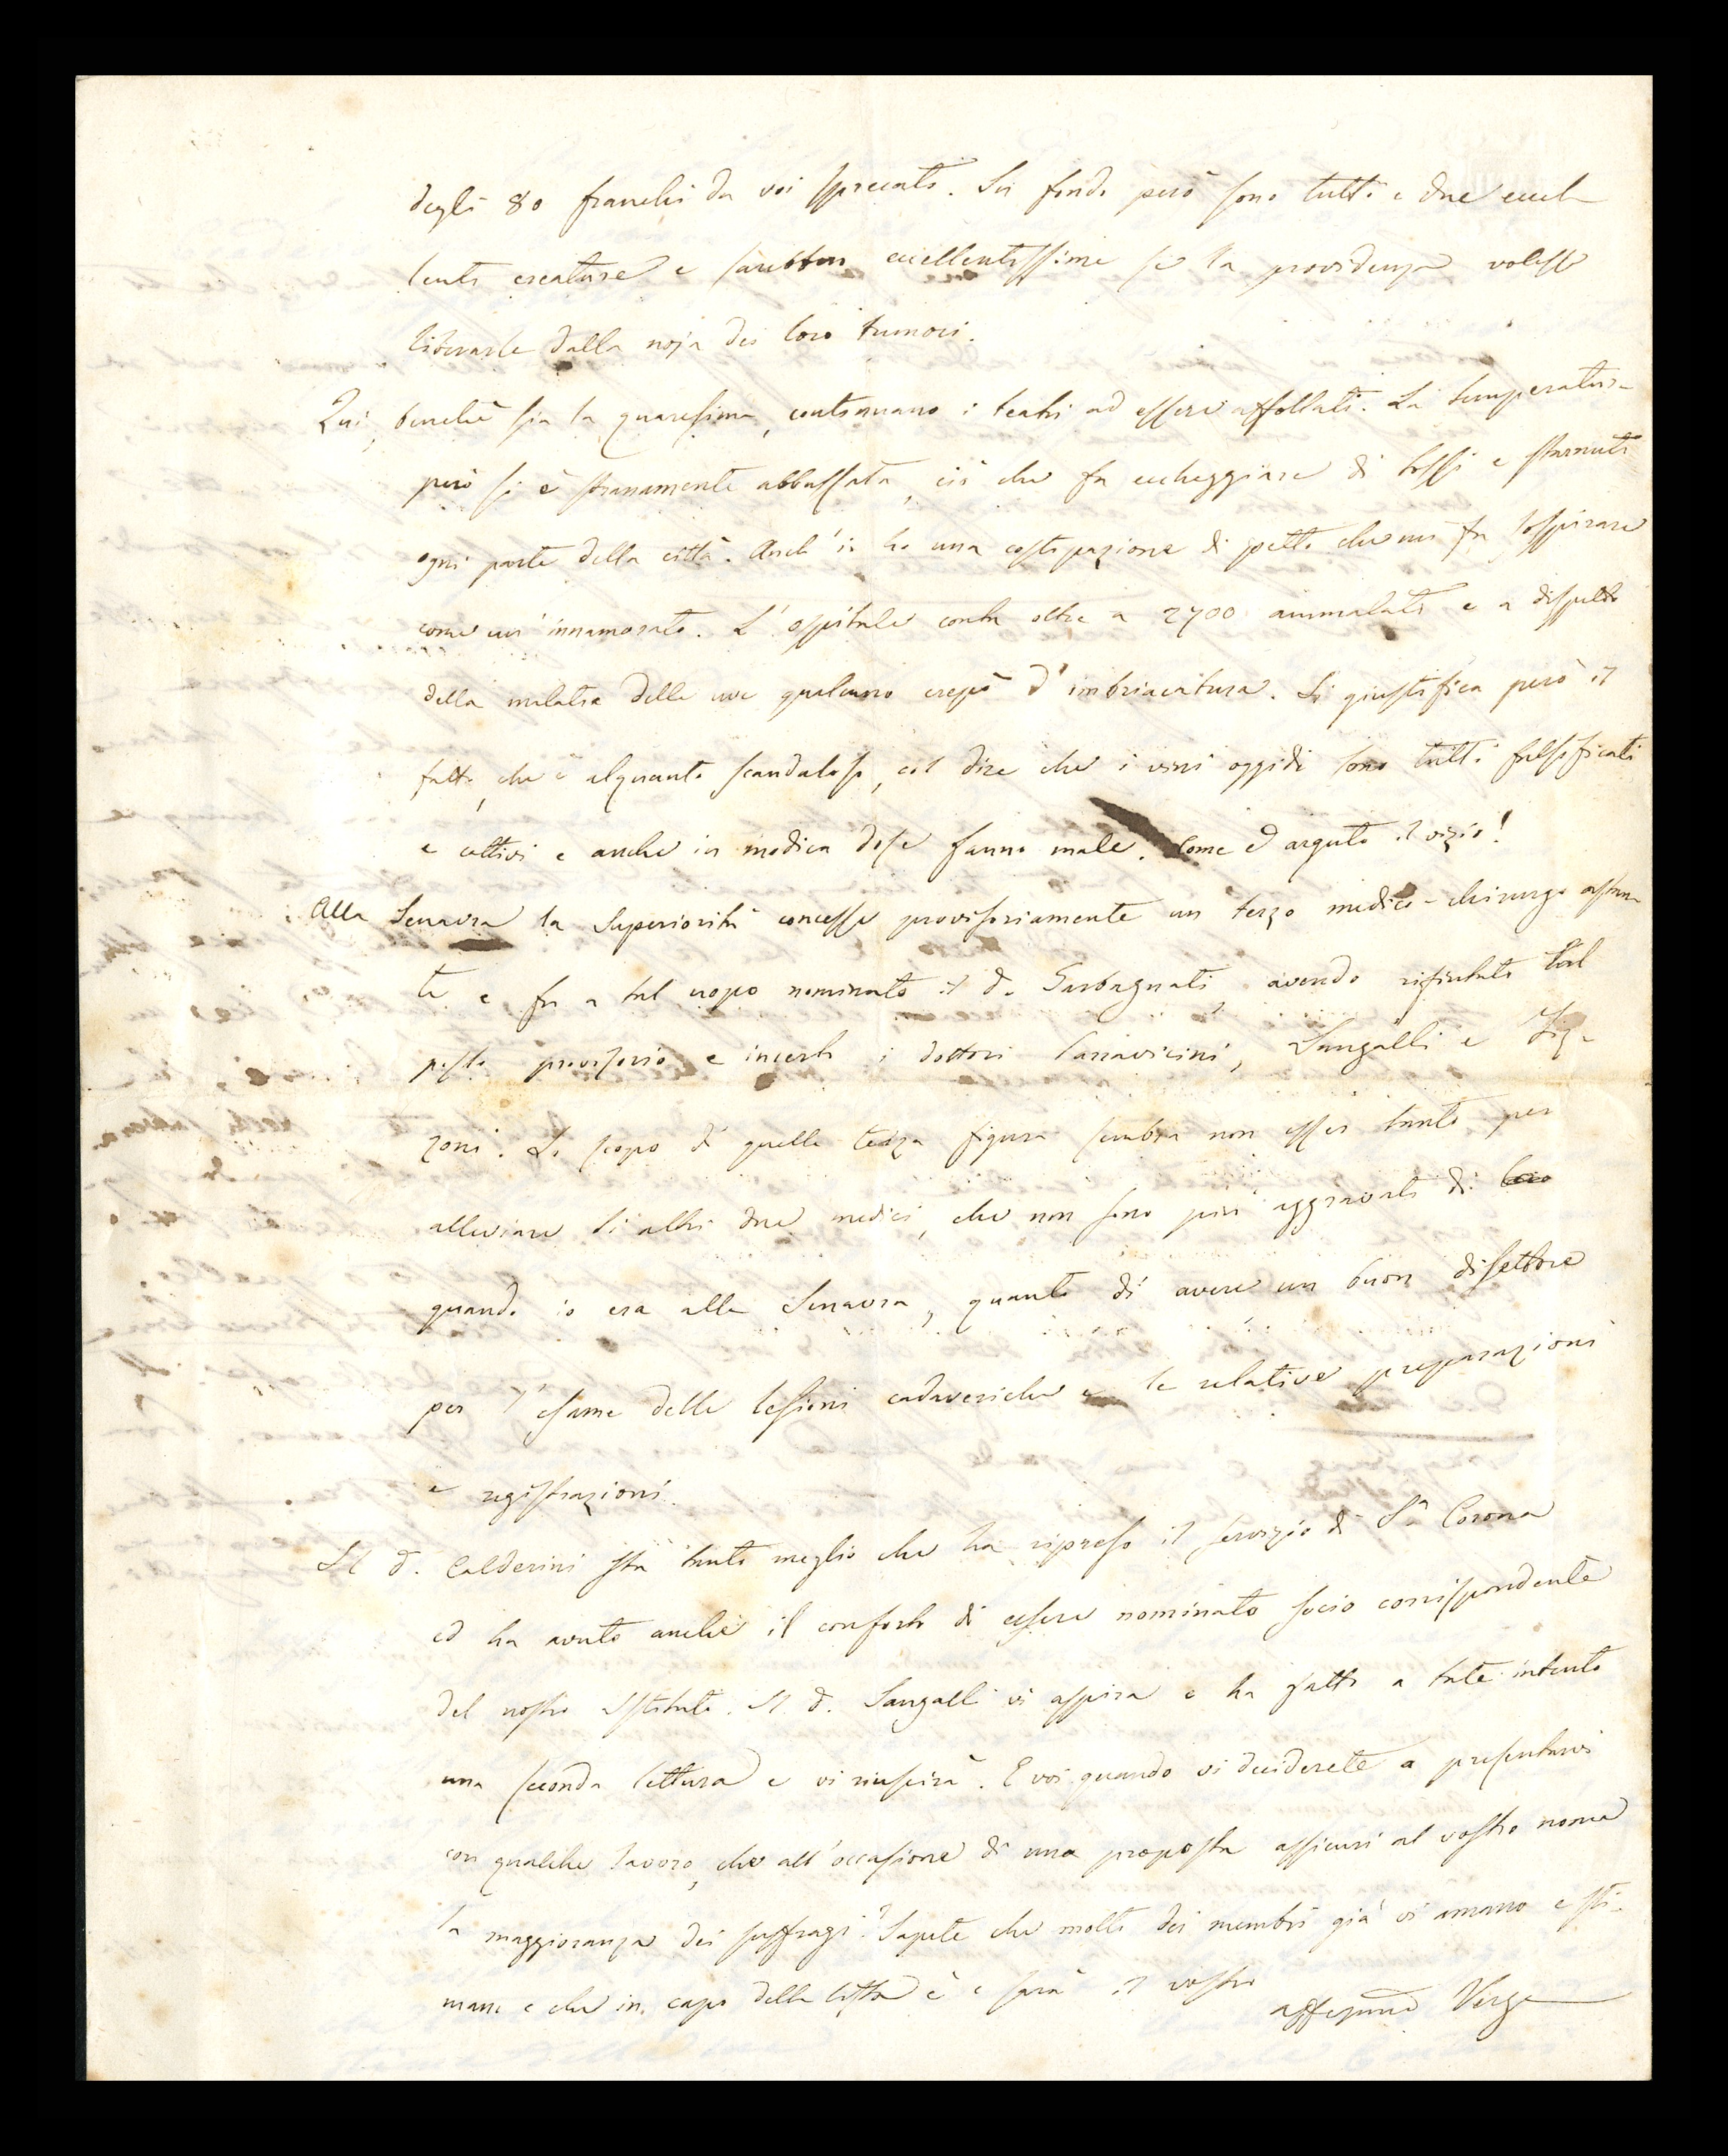 degli 80 franchi da voi sprecati. In fondo però sono tutti e due eccel-
lenti creature e sarebbero eccellentissime se la providenza volesse
liberarle dalla noja dei loro tumori.
Qui, benchè sia la quaresima, continuano i teatri ad essere affollati. La temperatura
però si è stranamente abbassata, ciò che fa eccheggiare di tossi e starnuti
ogni parte della città. Anch'io ho una costipazione di petto che mi fa sospirare
come un innamorato. L'ospitale conta oltre a 2700 ammalati e a dispetto
della malatia delle uve qualcuno crepò d'imbriacatura. Si giustifica però il
fatto, che è alquanto scandaloso, col dire che i vini oggidì sono tutti falsificati
e cattivi e anche in modica dose fanno male. Come è arguto il vizio!
Alla Senavra la Superiorità concesse provisoriamente un terzo medico-chirurgo astan-
te e fu a tal uopo nominato il d. Garbagnati, avendo rifiutato tal
posto provisorio e incerto i dottori Parravicini, Sangalli e Tiz-
zoni. Lo scopo di quella terza figura sembra non esser tanto per
alleviare li altri due medici, che non sono più aggravati di
quando io era alla Senavra, quanto di avere un buon disettore
per l'esame delle lesioni cadaveriche e le relative preparazioni
e registrazioni.
Il d. Calderini sta tanto meglio che ha ripreso il servizio di Sa Corona
ed ha avuto anche il conforto di essere nominato socio corrispondente
del nostro Istituto. Il d. Sangalli vi aspira e ha fatto a tale intento
una seconda lettura e vi riuscirà. E voi quando vi deciderete a presentarvi
con qualche lavoro, che all'occasione di una proposta assicuri al vostro nome
la maggioranza dei suffragi? Sapete che molti dei membri già vi amano e sti-
mano e che in capo della lista è e sarà il vostro
affezmo Verga